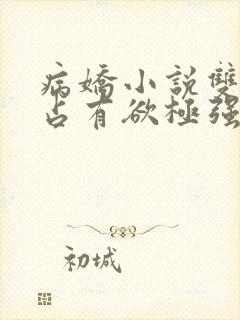 病嬌小說雙
占有欲極强
初城